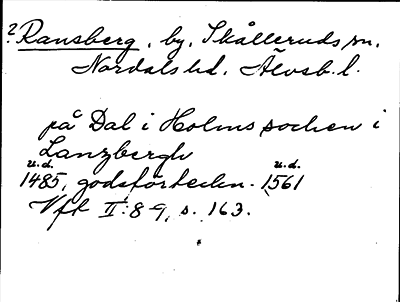 ? Ransberg, by, Skålleruds sn,
Nordals hd, Älvsb. l.
på Dal i Holms socken i
Lanzbergh
u.d. u.d.
1485, godsförteckn. 1561
Vfk II:8-9, s. 163.